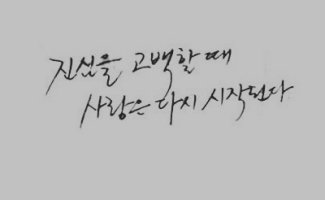 진심을 고백할 때
사랑은 다시 시작된다